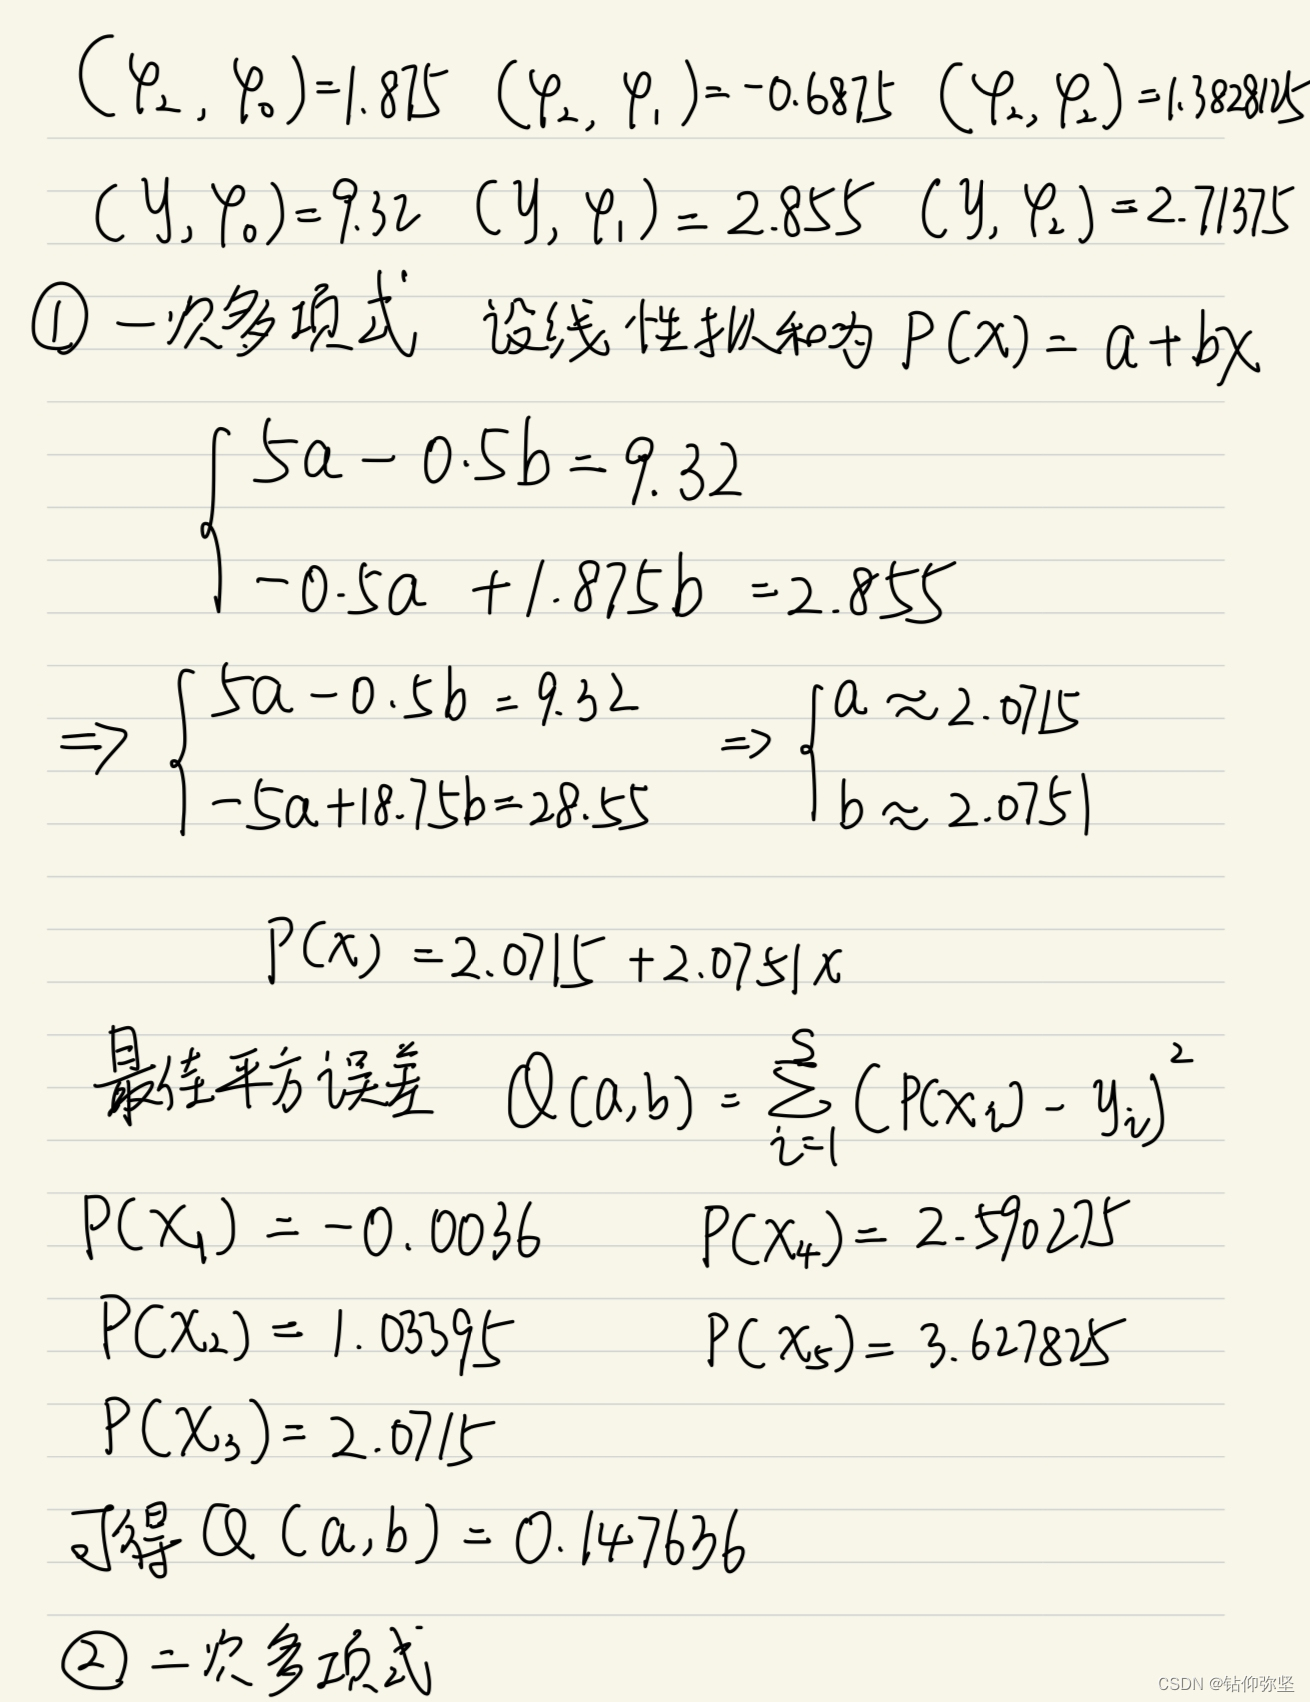 (φ₂, φ₀)=1.875 (φ₂, φ₁)=-0.6875 (φ₂, φ₂)=1.3828125
(y, φ₀)=9.32 (y, φ₁)=2.855 (y, φ₂)=2.71375
① 一次多项式 设线性拟和为 P(x)=a+bx
5a-0.5b=9.32
-0.5a+1.875b=2.855
⇒ { 5a-0.5b=9.32 ⇒ { a≈2.0715
-5a+18.75b=28.55 b≈2.0751
P(x)=2.0715+2.0751x
最佳平方误差 Q(a,b)=∑_{i=1}^{5}(P(xᵢ)-yᵢ)²
P(x₁)=-0.0036 P(x₄)=2.590275
P(x₂)=1.03395 P(x₅)=3.627825
P(x₃)=2.0715
可得 Q(a,b)=0.147636
② 二次多项式
CSDN @钻仰弥坚